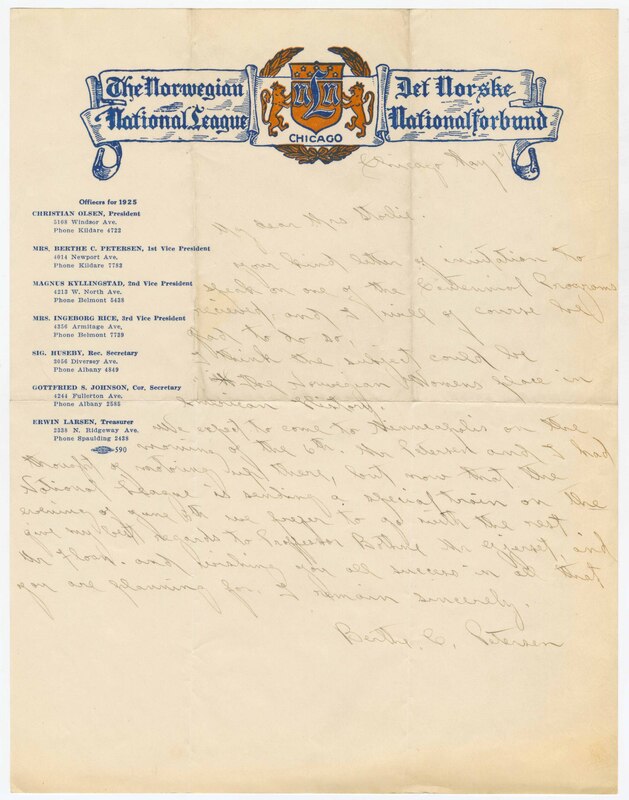 The Norwegian National League
Det Norske Nationalforbund
NLN
CHICAGO
Chicago May
Officers for 1925
CHRISTIAN OLSEN, President
5168 Windsor Ave.
Phone Kildare 4722
MRS. BERTHE C. PETERSEN, 1st Vice President
4014 Newport Ave.
Phone Kildare 7782
MAGNUS KYLLINGSTAD, 2nd Vice President
4213 W. North Ave.
Phone Belmont 5438
MRS. INGEBORG RICE, 3rd Vice President
4356 Armitage Ave.
Phone Belmont 7739
SIG. HUSEBY, Rec. Secretary
2056 Diversey Ave.
Phone Albany 4849
GOTTFRIED S. JOHNSON, Cor. Secretary
4244 Fullerton Ave.
Phone Albany 2585
ERWIN LARSEN, Treasurer
2338 N. Ridgeway Ave.
Phone Spaulding 2438
590
My dear Mrs
your kind letter of invitation to
speak on one of the Centennial Programs
received, and I will of course be
glad to do so,
I think the subject could be
* The Norwegian Womens place in
American History.
We expect to come to Minneapolis on the
morning of the 6th. Mr Petersen and I had
thought of motoring up there, but now that the
National League is sending a special train on the
evening of June 5th we prefer to go with the rest
give my best regards to Professor Bothne Mr Gjerset, and
and wishing you all success in all that
you are planning for. I remain sincerely.
Berthe C. Petersen